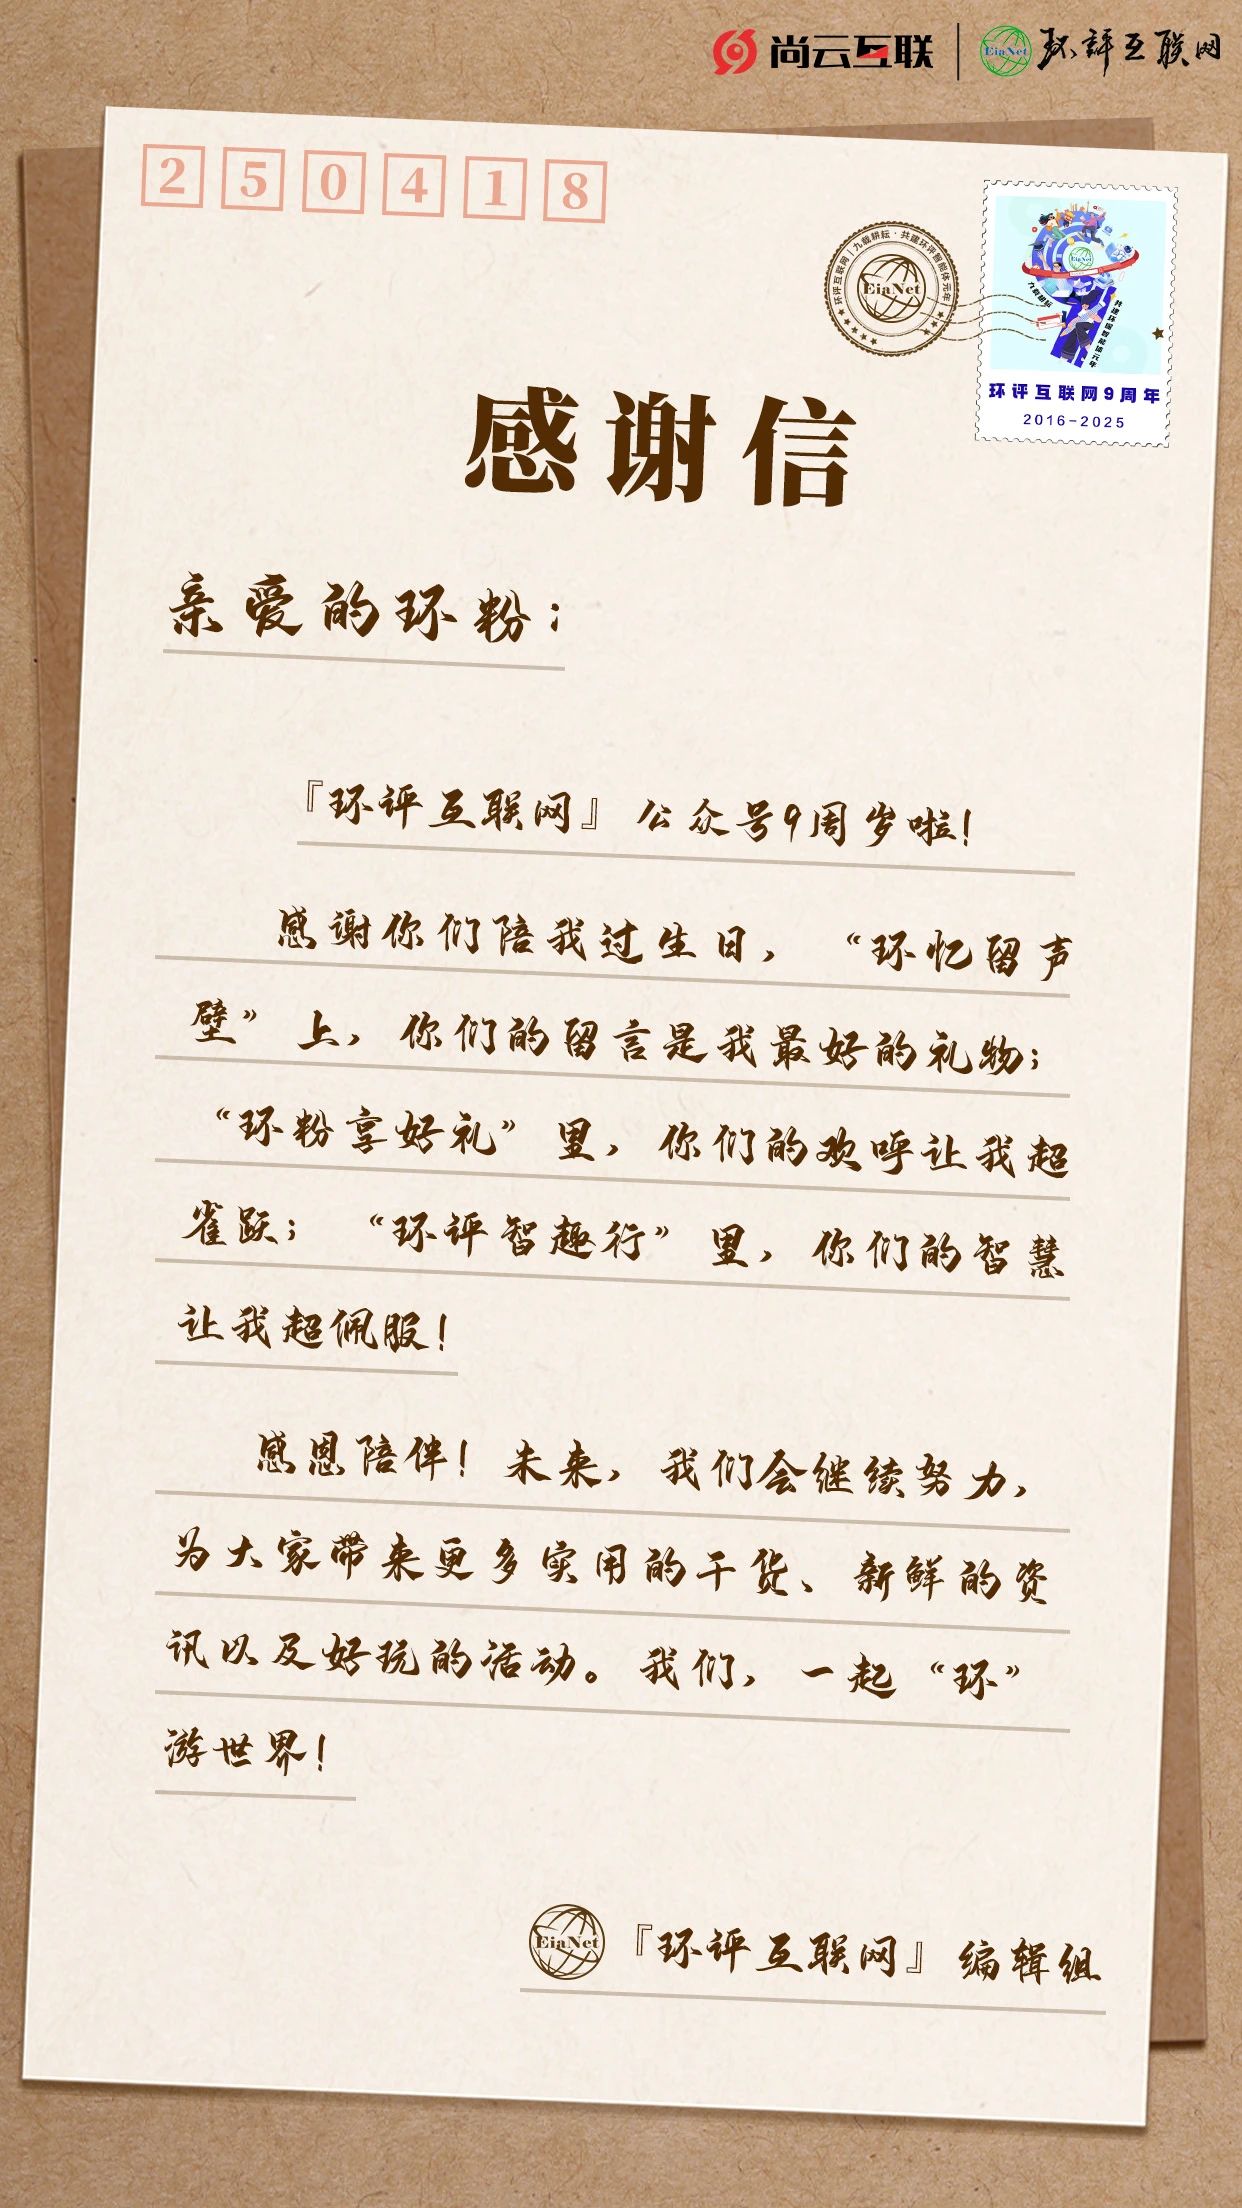 尚云互联 EiaNet 环评互联网
250418
环评互联网|九载耕耘·共建环评智能体元年
EiaNet
EiaNet
九载耕耘
共建环评智能体元年
环评互联网9周年
2016-2025
感谢信
亲爱的环粉：
『环评互联网』公众号9周岁啦！
感谢你们陪我过生日，“环忆留声
壁”上，你们的留言是我最好的礼物；
“环粉享好礼”里，你们的欢呼让我超
雀跃；“环评智趣行”里，你们的智慧
让我超佩服！
感恩陪伴！未来，我们会继续努力，
为大家带来更多实用的干货、新鲜的资
讯以及好玩的活动。我们，一起“环”
游世界！
EiaNet 『环评互联网』编辑组